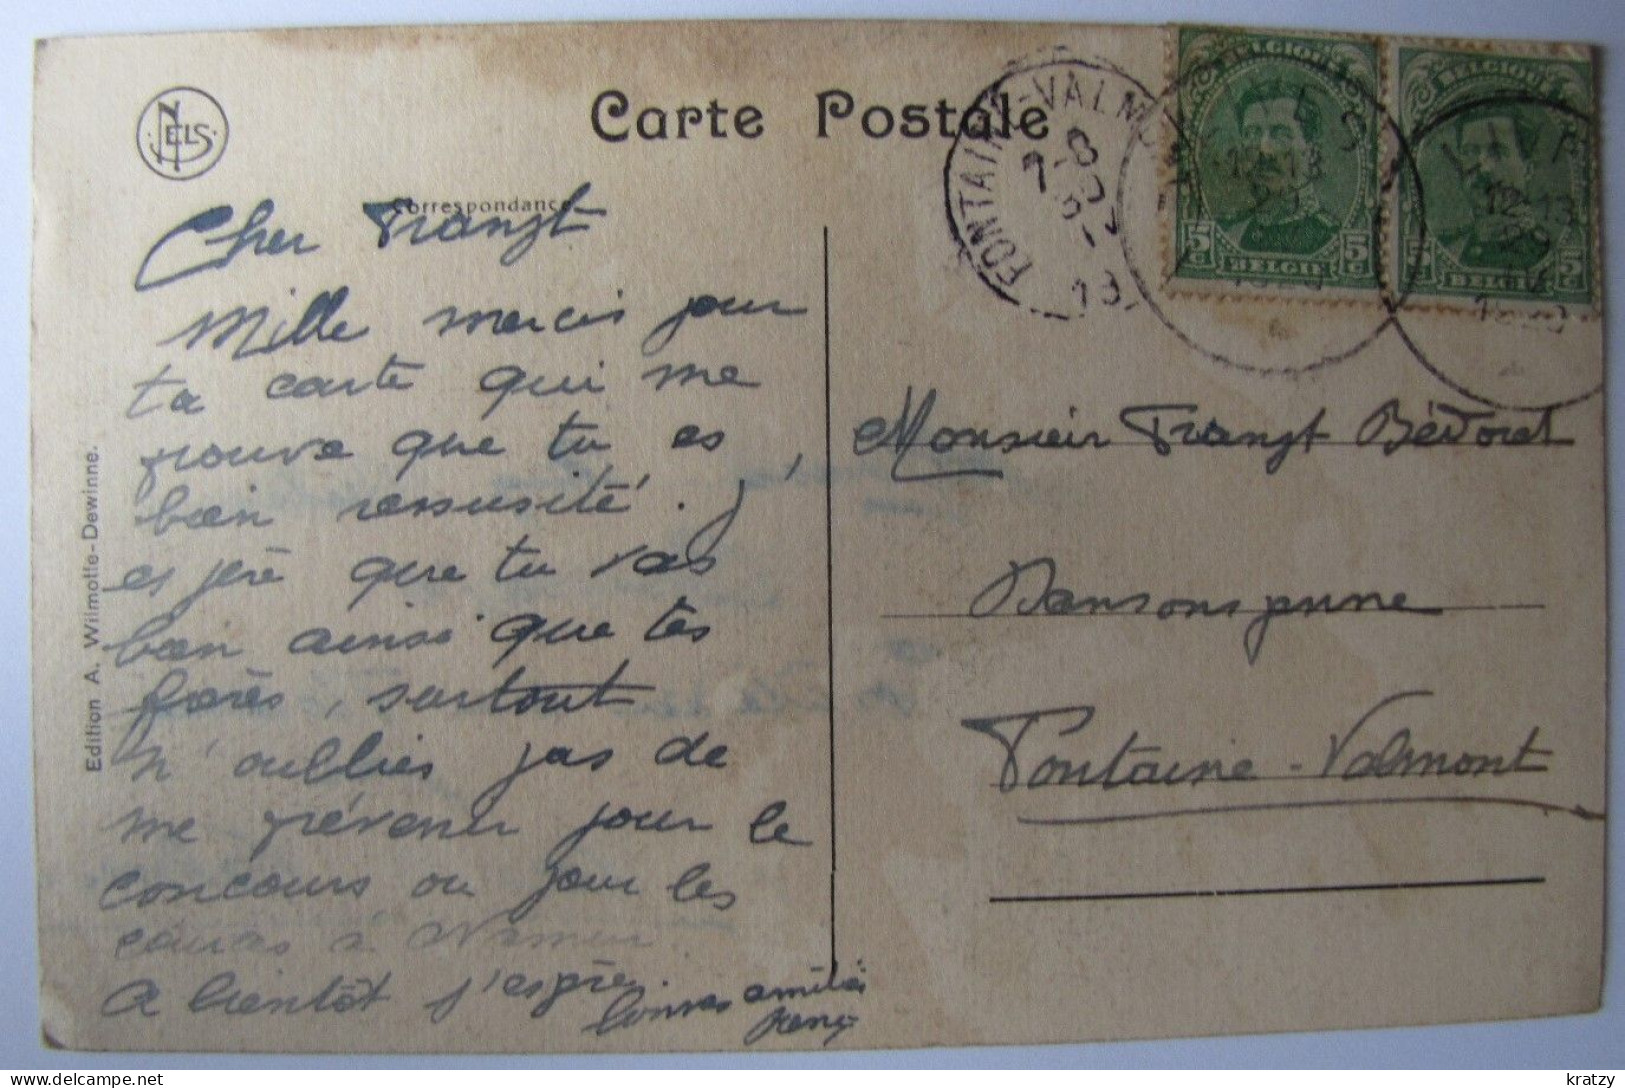 NELS
Carte Postale
Correspondance
Edition A. Wilmotte-Dewinne.
FONTAINE-VALMO
BELGIQUE
5c BELGIE 5c
12-13
29
BELGIQUE
5c BELGIE 5c
12-13
29
Cher Franzt
Mille mercis pour
ta carte qui me
prouve que tu es
bien ressusité. J'
espère que tu vas
bien ainsi que tes
forès, surtout
n'oublies pas de
me prévenir pour le
concours ou pour les
courses à Namur
A bientôt j'espère
bonnes amitiés
Monsieur Franzt Bédoret
Fontaine-Valmont
kratzy